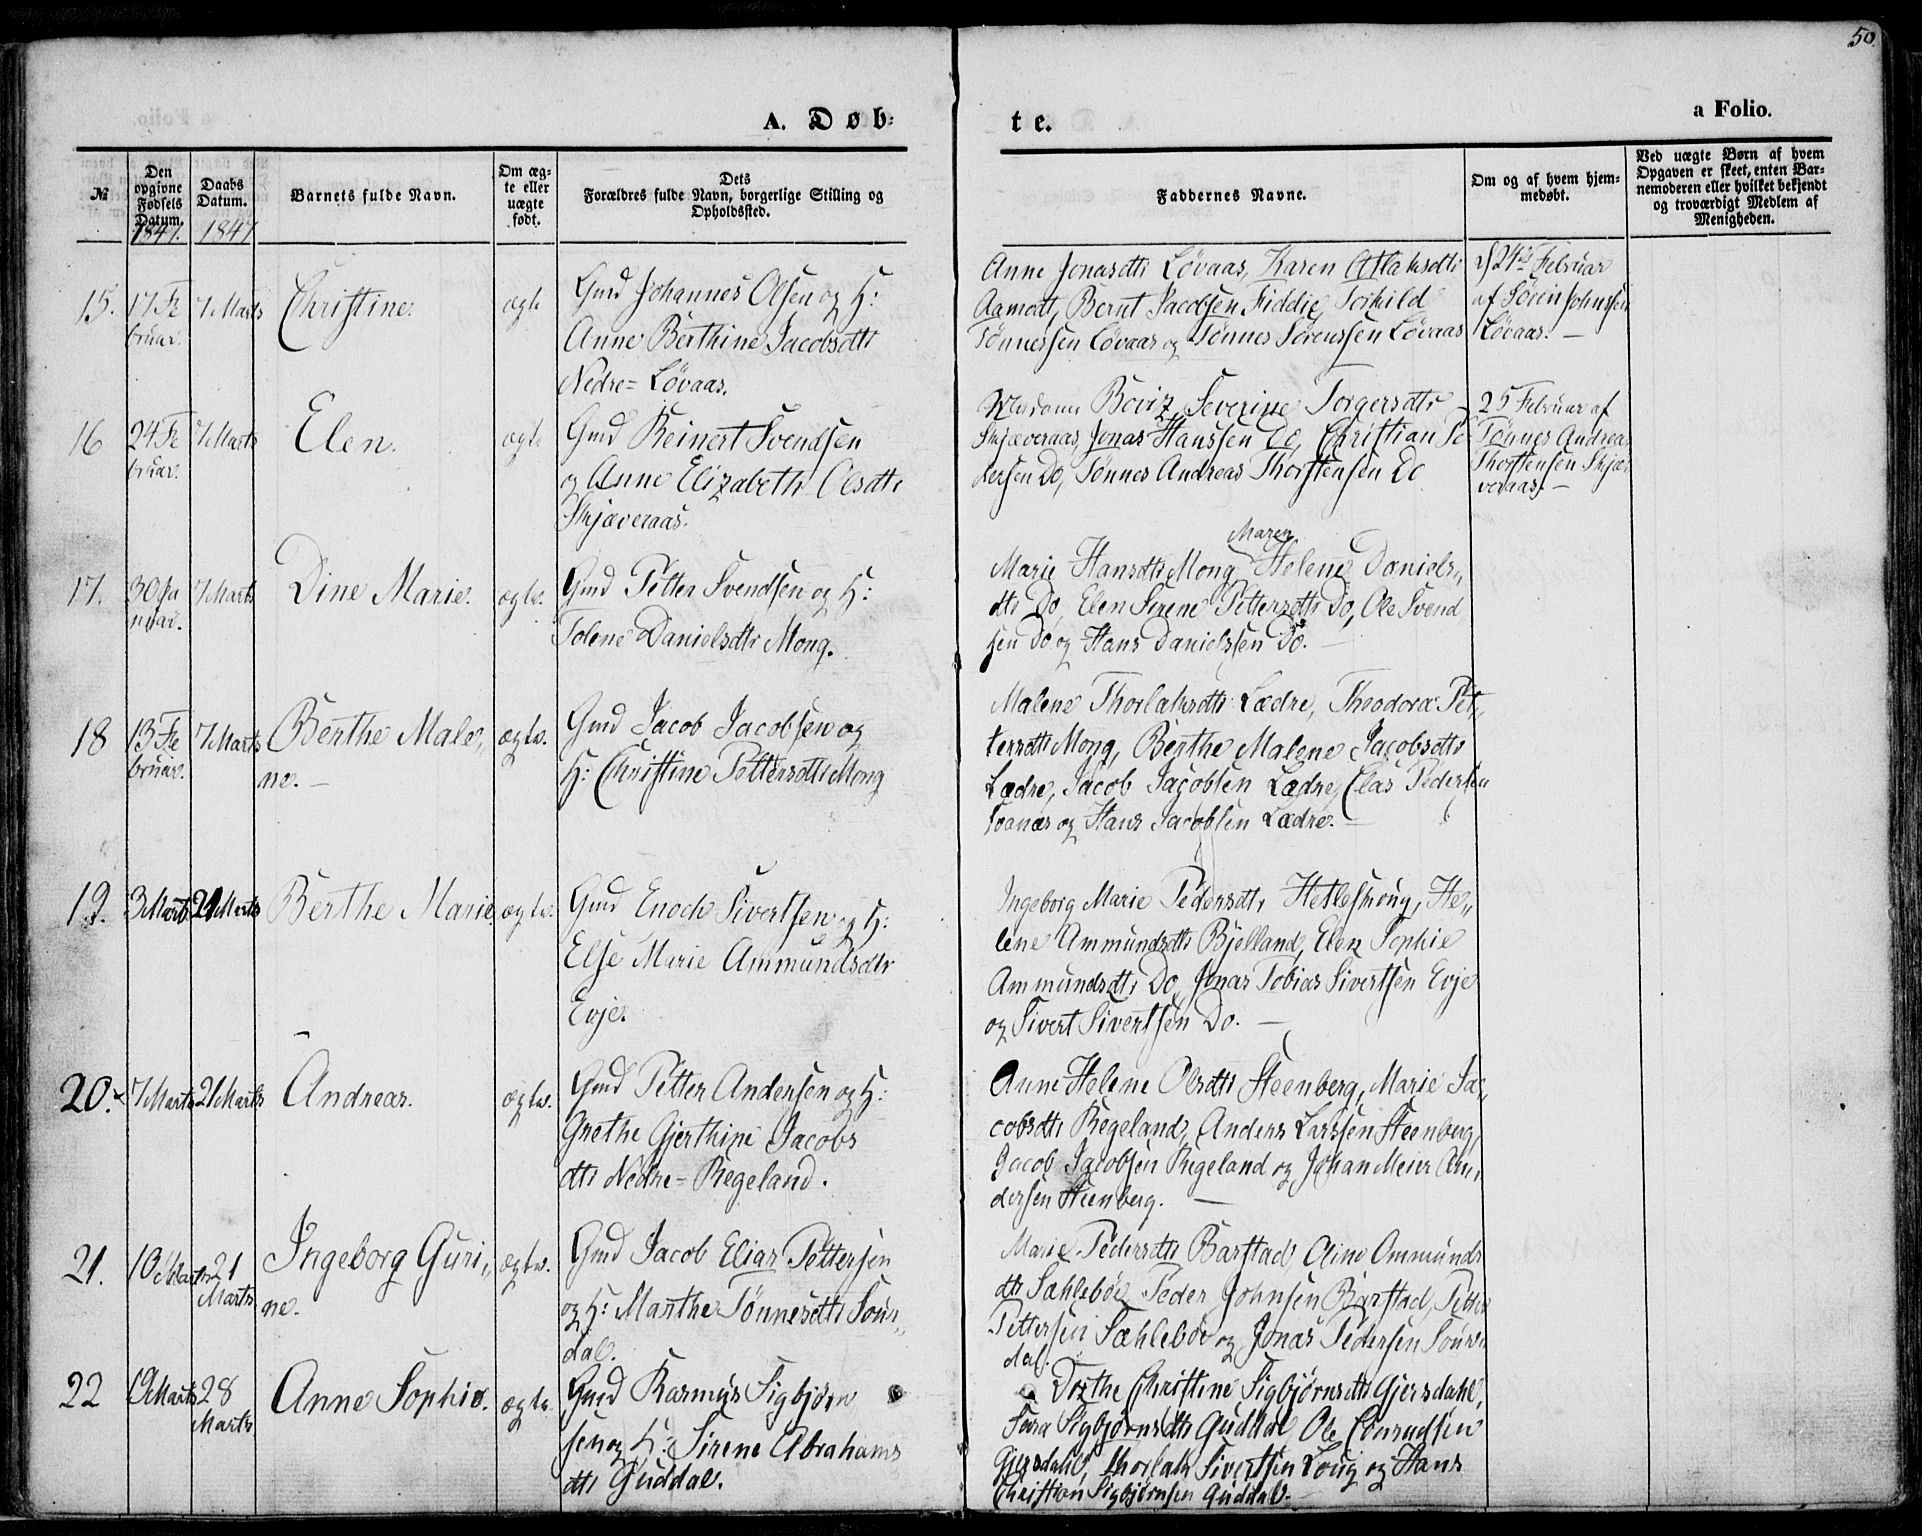 50
A. Døb-
te.
a Folio.
№
Den opgivne Fødsels Datum.
1847.
Daabs Datum.
1847
Barnets fulde Navn.
Om ægte eller uægte født.
Dets
Forældres fulde Navn, borgerlige Stilling og
Opholdssted.
Faddernes Navne.
Om og af hvem hjem-
medøbt.
Ved uægte Børn af hvem
Opgaven er skeet, enten Bar-
nemoderen eller hvilket bekjendt
og troværdigt Medlem af
Menigheden.
15.
17 Fe
bruar.
7 Marts
Christine.
ægte
Gmd Johannes Olsen og H:
Anne Berthine Jacobsdtr
Nedre= Løvaas.
Anne Jonasdtr Løvaas, Karen Aslaksdtr
Aamodt, Bernt Jacobsen Fiddie, Torkild
Tønnessen Løvaas og Tønnes Sørenssen Løvaas
24de Februar
af Søren Johnsen
Løvaas. —
16
24 Fe
bruar.
7 Marts
Elen.
ægte
Gmd Reinert Svendsen
og Anne Elizabeth Olsdtr
Skjæveraas.
Madame Severine Torgersdtr
Skjæveraas, Jonas Hanssen Do, Christian Pe
dersen Do, Tønnes Andreas Thorstensen Do
25 Februar af
Tønnes Andreas
Thorstensen Skjæ
veraas. —
17.
30 Ja
nuar.
7 Marts
Dine Marie.
ægte.
Gmd Petter Svendsen og H:
Tolene Danielsdtr Mong.
Maren
Marie Hansdtr Mong Helene Daniels„
dtr Do, Elen Sirene Pettersdtr Do, Ole Svend
sen Do og Hans Danielssen Do. —
18
13 Fe
bruar.
7 Marts
Berthe Male„
ne. —
ægte.
Gmd Jacob Jacobsen og
H: Christine Pettersdtr Mong
Malene Thorlaksdtr Lædre, Theodora Pet„
tersdtr Mong, Berthe Malene Jacobsdtr
Lædre, Jacob Jacobsen Lædre, Elias Pedersen
og Hans Jacobsen Lædre. —
19.
3 Marts
21 Marts
Berthe Marie
ægte.
Gmd Enoch Sivertsen og H:
Else Marie Ammundsdtr
Evje.
Ingeborg Marie Pedersdtr Hetlesmong, He„
lene Ammundsdtr Bjelland, Elen Sophie
Ammundsdtr Do, Jonas Tobias Sivertsen Evje
og Sivert Sivertsen Do. —
20.
7 Marts
21 Marts
Andreas.
ægte.
Gmd Petter Andersen og H:
Grethe Gjerthine Jacobs
dtr Nedre=Regeland.
Anne Helene Olsdtr Steenberg, Marie Ja„
cobsdtr Regeland, Anders Larssen Steenberg,
Jacob Jacobsen Regeland og Johan Meier An„
dersen Steenberg. —
21.
10 Marts
21
Marts
Ingeborg Guri„
ne.
ægte.
Gmd Jacob Elias Pettersen
og H: Marthe Tønnesdtr Souv„
dal.
Marie Pedersdtr Barstad, Oline Ammunds
dtr Sæhlebøe Peder Johnsen Barstad, Petter
Pettersen Sæhlebøe og Jonas Pedersen Souv„
dal.
22
19 Marts
28
Marts
Anne Sophie.
ægte.
Gmd Rasmus Sigbjørn
sen og H: Sirene Abrahams
dtr Guddal.
Dorthe Christine Sigbjørnsdtr Gjersdahl,
Sara Sigbjørnsdtr Guddal Ole Conradsen
Gjersdahl, Thorlak Sivertsen og Hans
Christian Sigbjørnsen Guddal. —